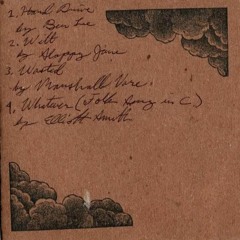 1. Hard Drive
by Ben Lee
2. Wilt
by Sloppy Jane
3. Wasted
by Marshall Vore
4. Whatever (Folk Song in C)
by Elliott Smith